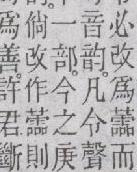 必改爲蘦而
音韵。凡令聲
一部。今之庚
倘改作蘦則
爲善。許君斷